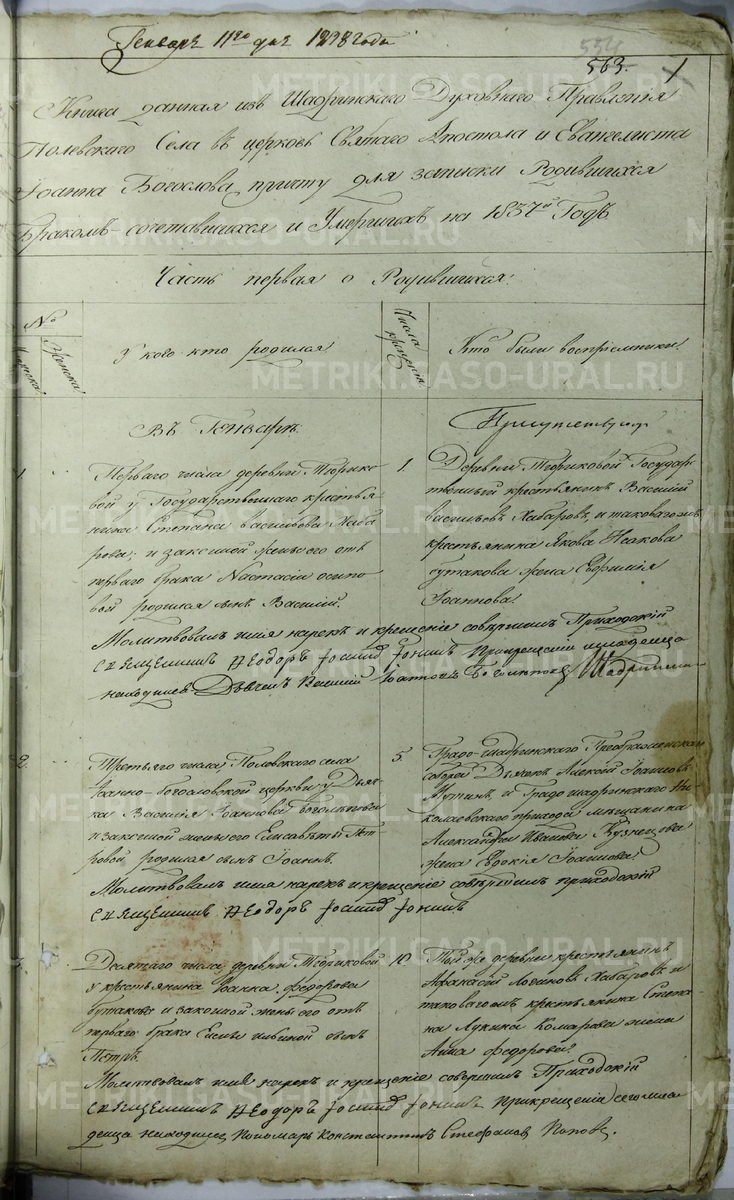 Генваря 11го дня 1838 года
554
563. 1
Книга данная изъ Шадринскаго Духовнаго Правленія
Полевскаго Села въ церковь Святаго Апостола и Евангелиста
Іоанна Богослова, причту для записки Родившихся
Бракомъ-сочетавшихся и Умершихъ на 1837й Годъ.
Часть первая о Родившихся:
№
Женска
У кого кто родился
Числа крещенія
Кто были воспріемники.
Въ Генварѣ.
1.
Перваго числа деревни
у Государственнаго крестья-
нина Степана Васильева Хаба-
рова; и законной жены его отъ
перваго брака Настасіи Осипо-
вой родился сынъ Василій.
1.
Деревни Государ-
ственный крестьянинъ Василій
Васильевъ Хабаровъ, и таковагожъ
крестьянина Якова Исакова
Бутакова жена Евфимія
Іоаннова.
Молитвовалъ имя нарекъ и крещеніе совершилъ Приходскій
Священникъ Ѳеодоръ При крещеніи младенца
находился Василій
2.
Третьяго числа, Полевскаго села
Іоанно-Богословской церкви у Дьяч-
ка Василія Іоаннова
и законной жены его Елисаветы Пет-
ровой, родился сынъ Іоаннъ.
5.
Градо-шадринскаго Преображенскаго
собора Алексій Іоанновъ
и Градо шадринскаго Ни-
колаевскаго прихода мѣщанина
Александра Иванова Кузнецова
жена Евдокія Іоаннова.
Молитвовалъ имя нарекъ и крещеніе совершилъ приходскій
Священникъ Ѳеодоръ
Десятаго числа, деревни
у крестьянина Ивана Федорова
Бутакова и законной жены его отъ
перваго брака Ильиной сынъ
Петръ.
10
Той же деревни крестьянинъ
Афанасій Логиновъ Хабаровъ и
таковагожъ крестьянина Степа-
на Лукина Комарова жена
Анна Федорова.
Молитвовалъ имя нарекъ и крещеніе совершилъ Приходскій
Священникъ Ѳеодоръ При крещеніи сего мла-
денца находился Пономарь Константинъ Стефановъ Поповъ.
METRIKI.GASO-URAL.RU